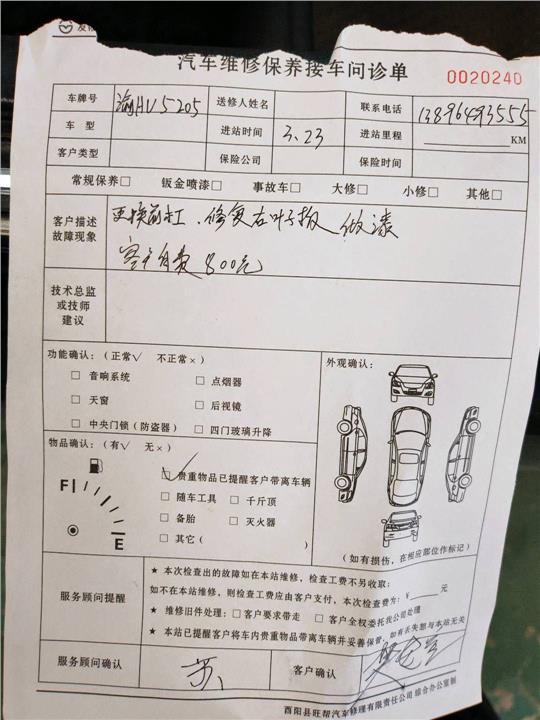 汽车维修保养接车问诊单 0020240
车牌号 渝HV5205 送修人姓名 联系电话 13896493555
车 型 进站时间 3.23 进站里程 KM
客户类型 保险公司 保险时间
常规保养□ 钣金喷漆□ 事故车□ 大修□ 小修□ 其他□
客户描述 更换前杠、修复右叶子板 做漆
故障现象 客户自费800元
技术总监
或技师
建议
功能确认：（正常√ 不正常×） 外观确认：
□ 音响系统 □ 点烟器
□ 天窗 □ 后视镜
□ 中央门锁（防盗器） □ 四门玻璃升降
物品确认：（有√ 无×）
□ 贵重物品已提醒客户带离车辆
F □ 随车工具 □ 千斤顶
□ 备胎 □ 灭火器
E □ 其它（ ）
（如有损伤，在相应部位作标记）
★ 本次检查出的故障如在本站维修，检查工费不另收取；
服务顾问提醒 如不在本站维修，则检查工费应由客户支付，本次检查费为：¥ 元
★ 维修旧件处理：□ 客户要求带走 □ 客户全权委托我公司处理
★ 本站已提醒客户将车内贵重物品带离车辆并妥善保管，如有丢失恕与本站无关
服务顾问确认 客户确认
酉阳县旺帮汽车修理有限责任公司 综合办公室制